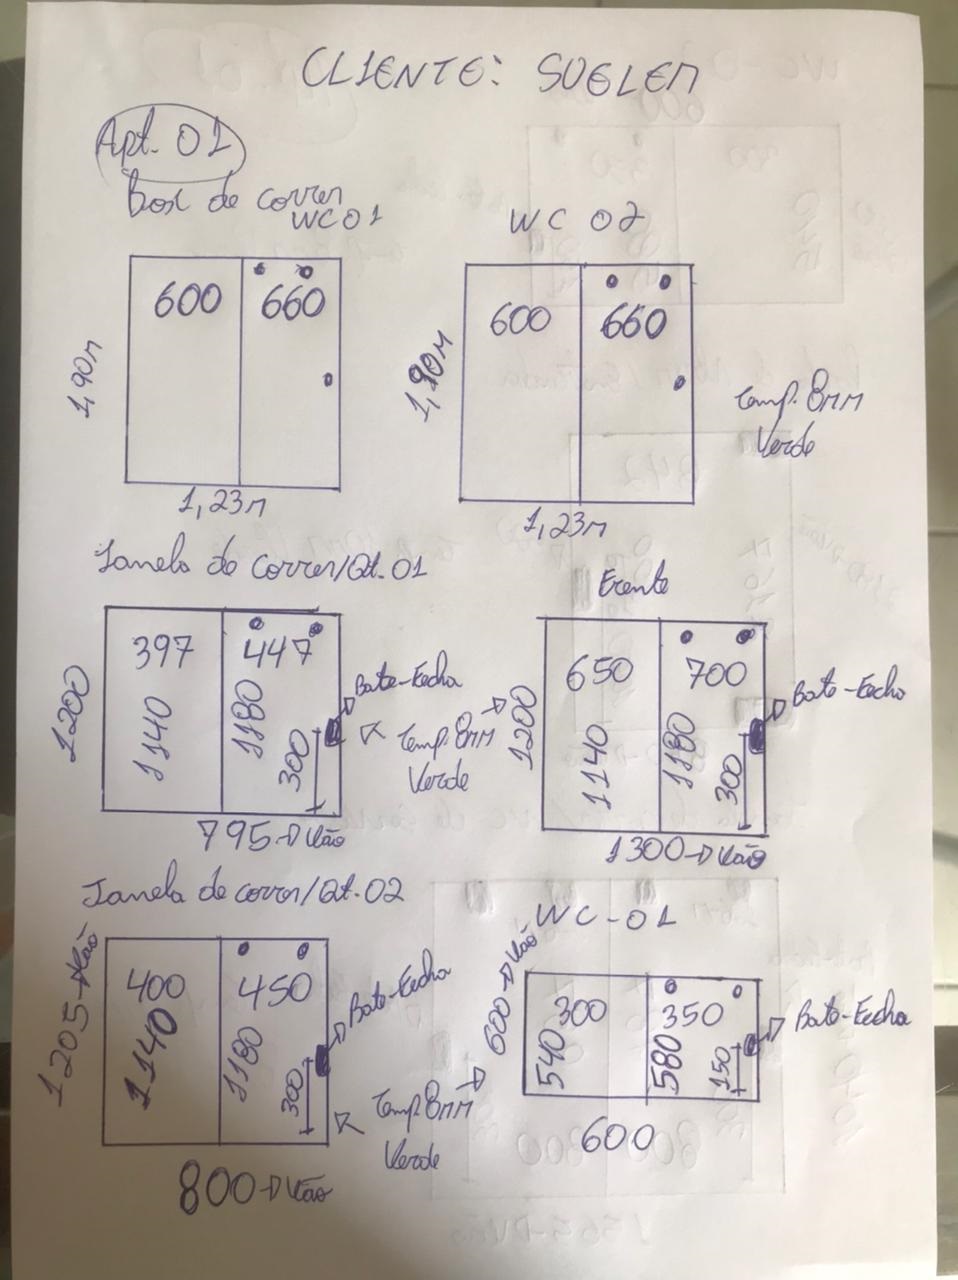 CLIENTE: SUELEM
Apt. 01
Box de correr
WC 01
WC 02
600
660
1,90M
1,23M
600
660
1,90M
1,23M
Temp. 8MM
Verde
Janela de correr/Qt. 01
Frente
397
447
1200
1140
1180
300
Bate-Fecha
Temp. 8MM
Verde
795 → Vão
650
700
1200
1140
1180
300
Bate-Fecha
1300 → Vão
Janela de correr/Qt. 02
WC-01
400
450
1205 → Vão
1140
1180
300
Bate-Fecha
Temp 8MM
Verde
800 → Vão
600 → Vão
300
350
540
580
150
Bate-Fecha
600